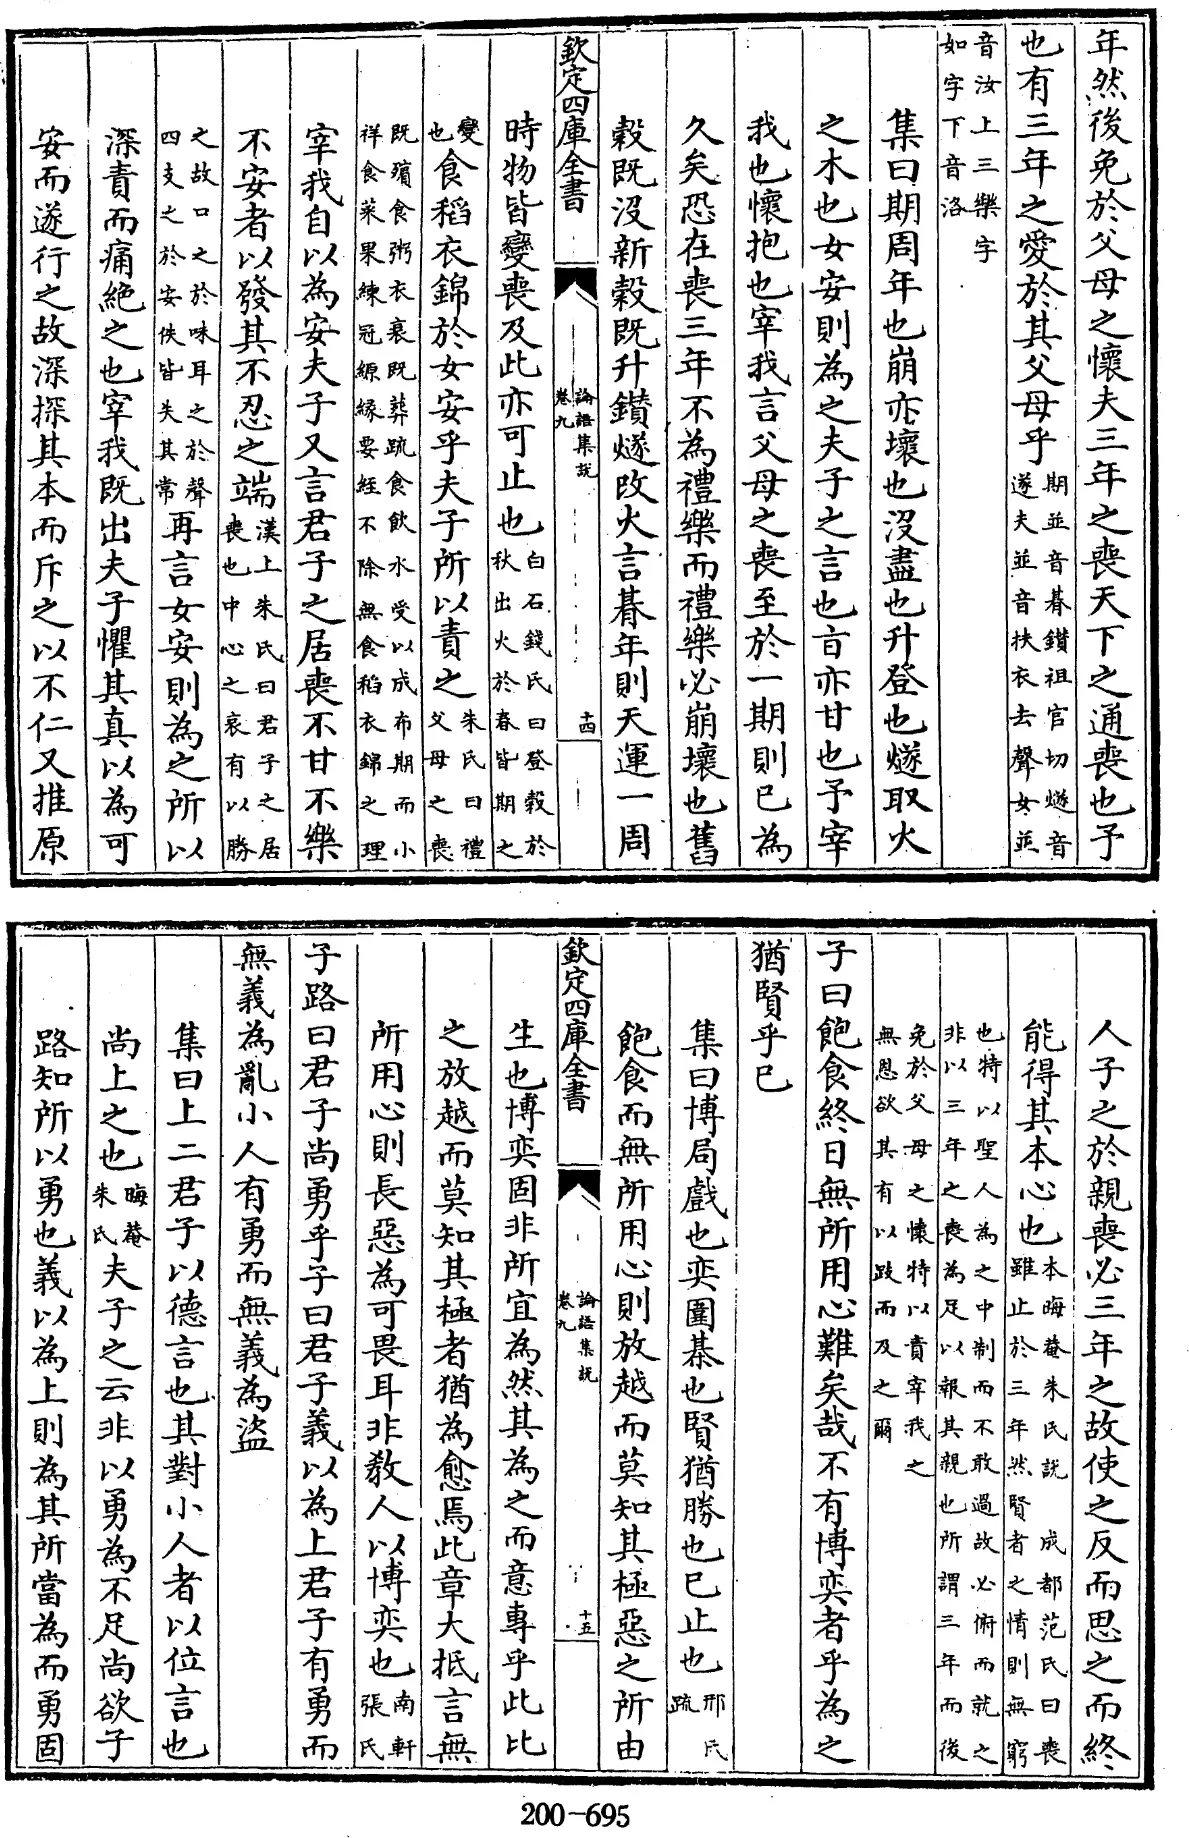 年然後免於父母之懷夫三年之喪天下之通喪也予
也有三年之愛於其父母乎期並音朞鑽祖官切燧音遂夫並音扶衣去聲女並
音汝上三樂字如字下音洛
集曰期周年也崩亦壞也沒盡也升登也燧取火
之木也女安則為之夫子之言也㫖亦甘也予宰
我也懷抱也宰我言父母之喪至於一期則已為
久矣恐在喪三年不為禮樂而禮樂必崩壞也舊
穀既沒新穀既升鑚燧改火言朞年則天運一周
欽定四庫全書
論語集説
卷九
十四
時物皆變喪及此亦可止也白石錢氏曰登穀於秋出火於春皆期之
變也食稻衣錦於女安乎夫子所以責之朱氏曰禮父母之喪
既殯食粥衣衰既葬疏食飲水受以成布期而小祥食菜果練冠縓緣要絰不除無食稻衣錦之理
宰我自以為安夫子又言君子之居喪不甘不樂
不安者以發其不忍之端漢上朱氏曰君子之居喪也中心之哀有以勝
之故口之於味耳之於聲四支之於安佚皆失其常再言女安則為之所以
深責而痛絶之也宰我既出夫子懼其真以為可
安而遂行之故深探其本而斥之以不仁又推原
人子之於親喪必三年之故使之反而思之而終
能得其本心也本晦菴朱氏説 成都范氏曰喪雖止於三年然賢者之情則無窮
也特以聖人為之中制而不敢過故必俯而就之非以三年之喪為足以報其親也所謂三年而後
免於父母之懷特以責宰我之無恩欲其有以跂而及之爾
子曰飽食終日無所用心難矣哉不有博奕者乎為之
猶賢乎已
集曰博局戲也奕圍棊也賢猶勝也已止也邢氏疏
飽食而無所用心則放越而莫知其極惡之所由
欽定四庫全書
論語集説
卷九
十五
生也博奕固非所宜為然其為之而意專乎此比
之放越而莫知其極者猶為愈焉此章大抵言無
所用心則長惡為可畏耳非教人以博奕也南軒張氏
子路曰君子尚勇乎子曰君子義以為上君子有勇而
無義為亂小人有勇而無義為盜
集曰上二君子以德言也其對小人者以位言也
尚上之也晦菴朱氏夫子之云非以勇為不足尚欲子
路知所以勇也義以為上則為其所當為而勇固
200-695